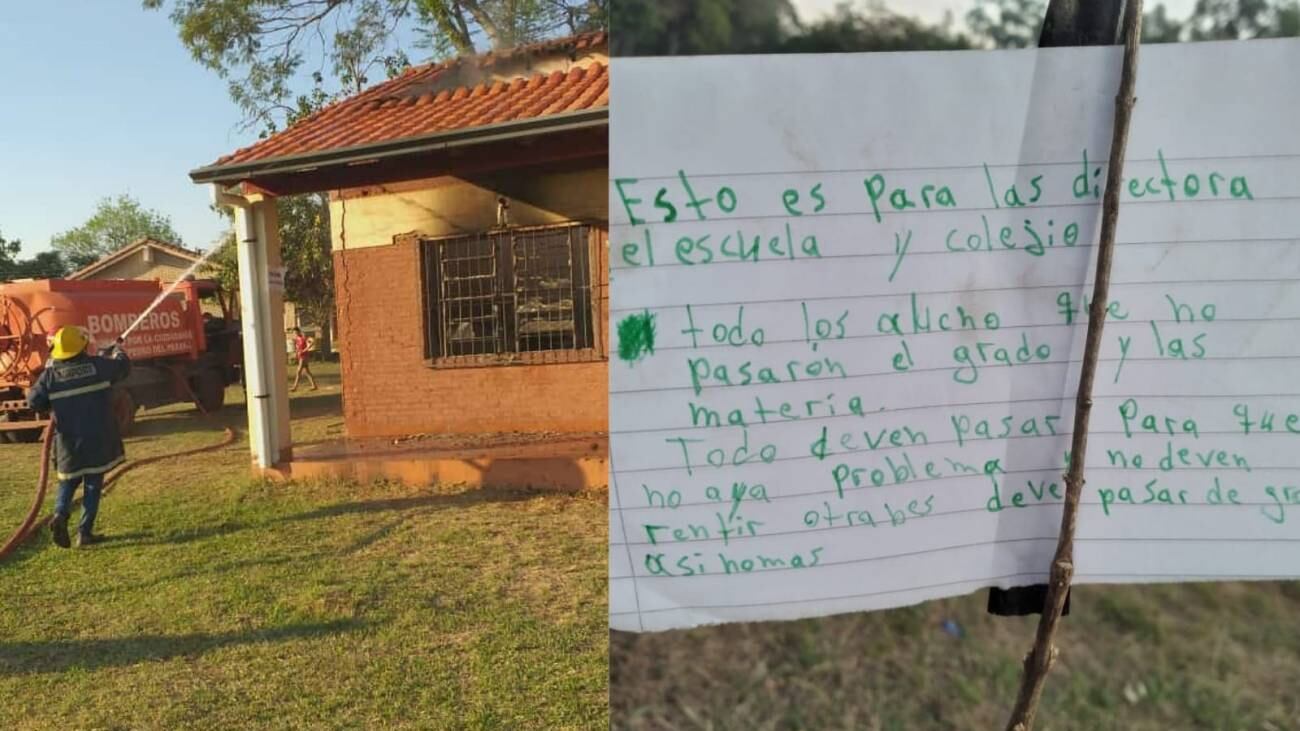 BOMBEROS
POR LA CIUDADANIA
Esto es para las directora
el escuela y colejio
todo los alucho que no
pasarón el grado y las
materia.
Todo deven pasar para que
no aya problema y no deven
rentir otrabes deve pasar de gra
asi nomas